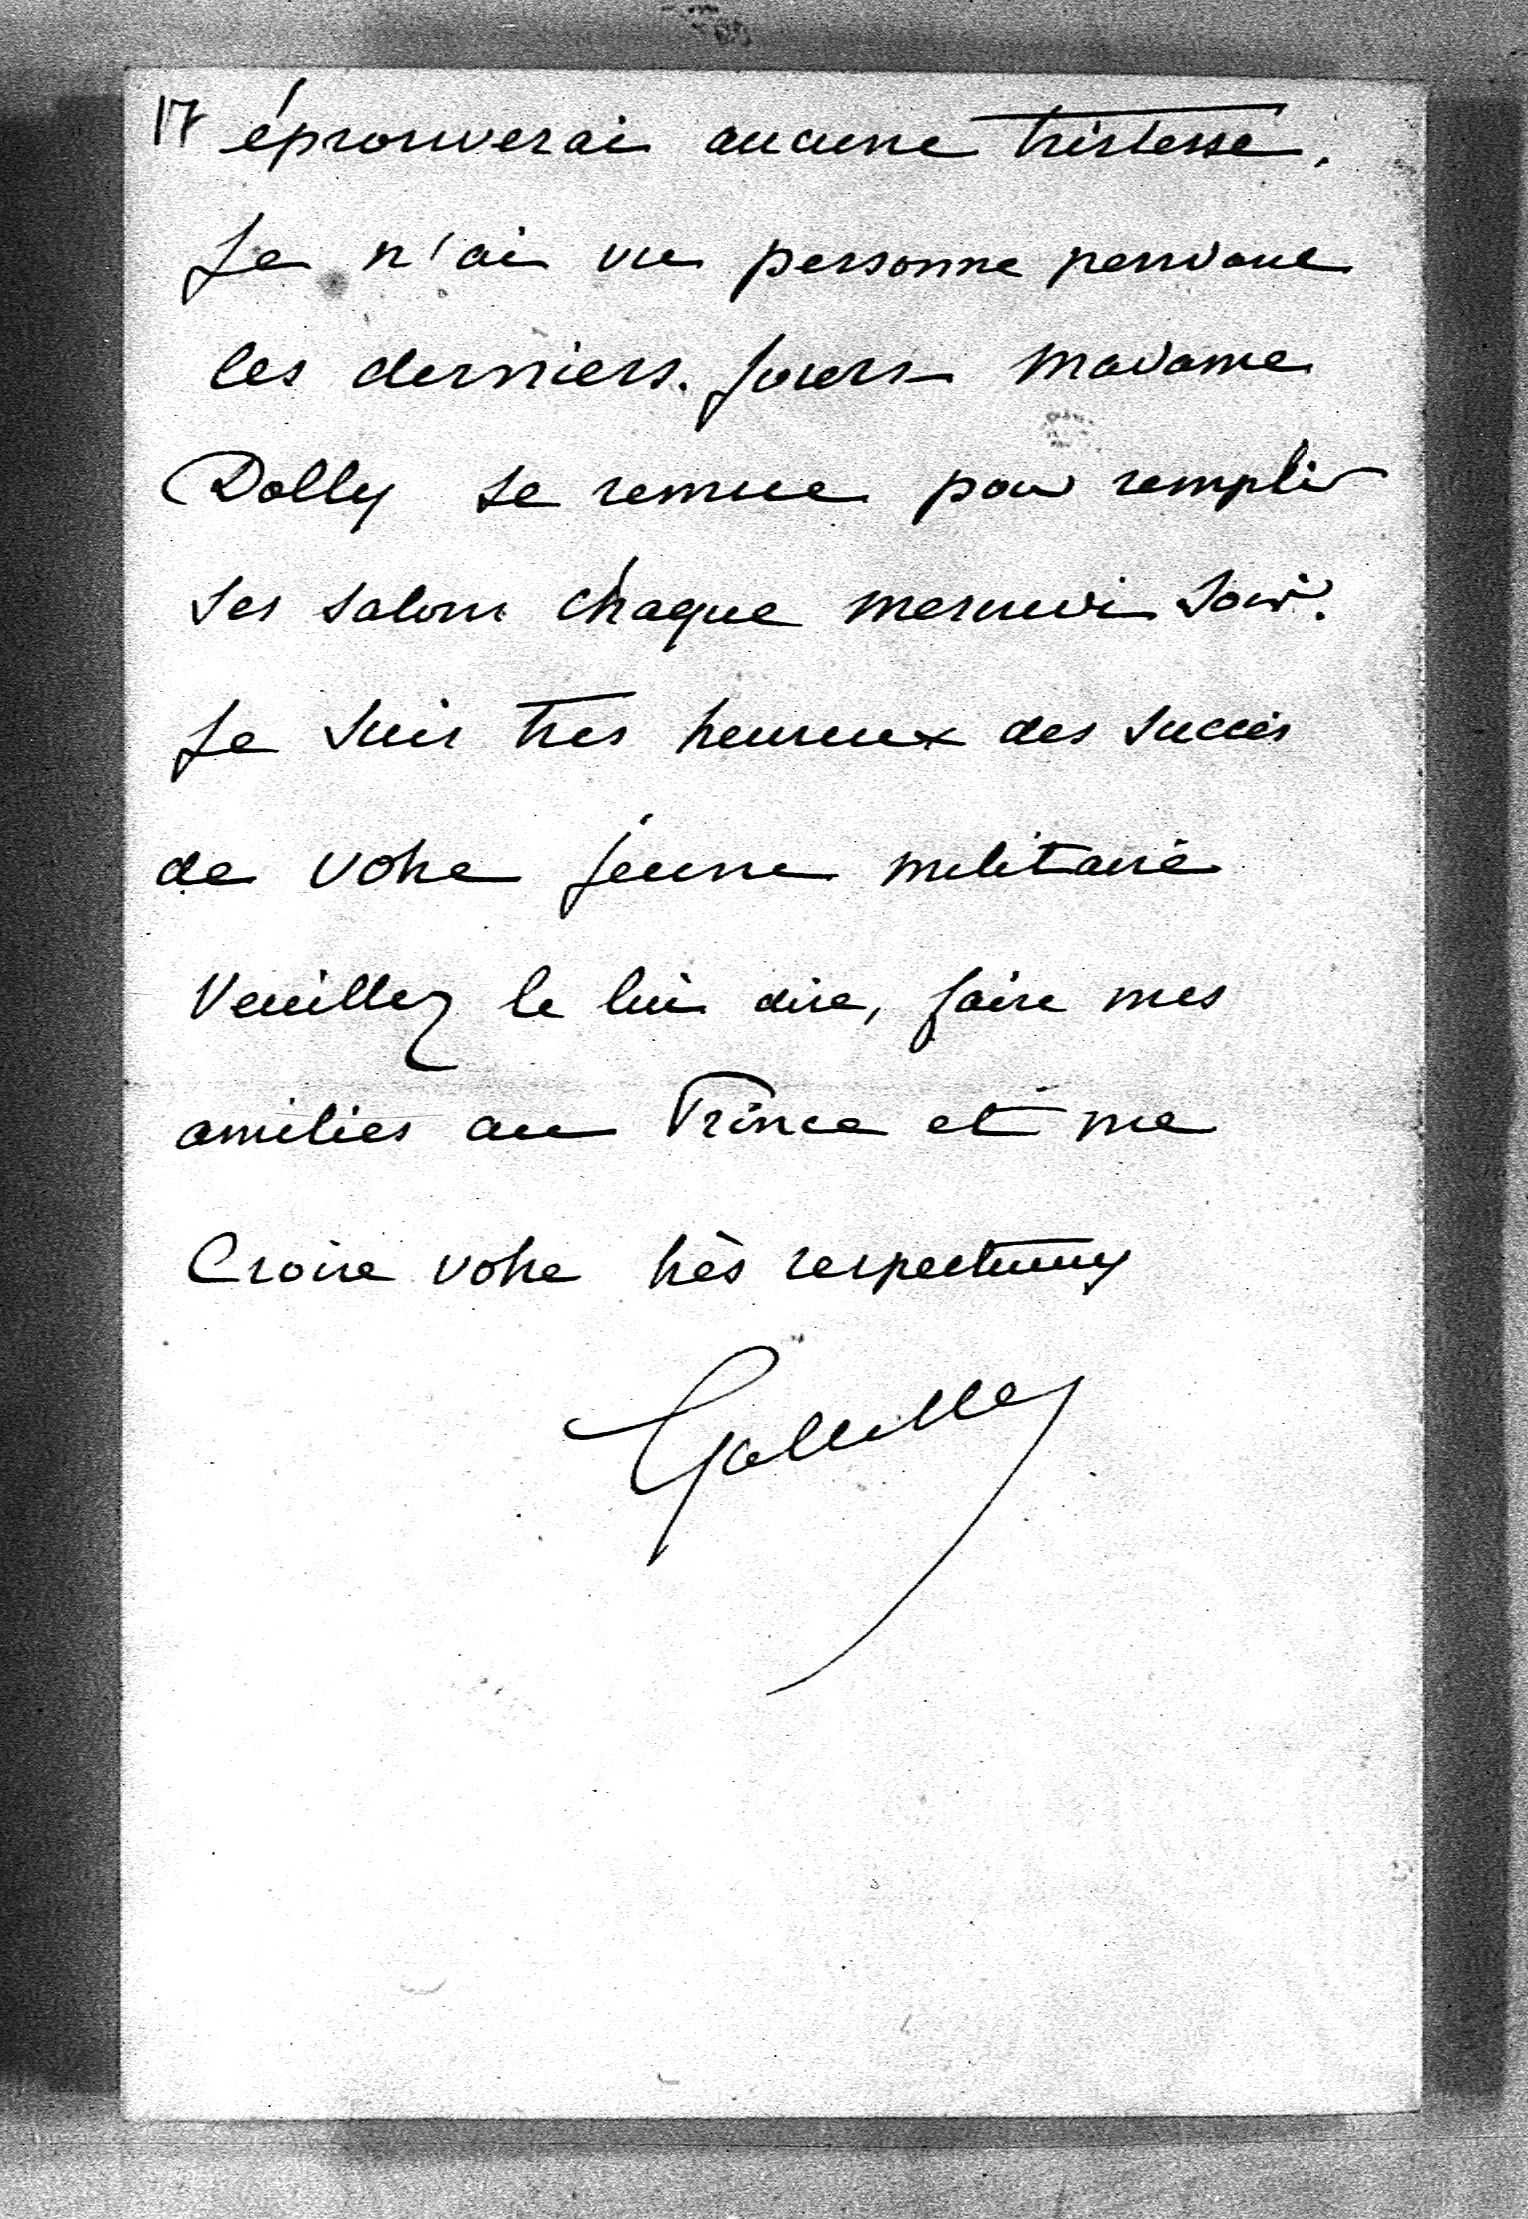 17 éprouverai aucune tristesse.
Je n'ai vu personne pendant
les derniers jours Madame
Dolly se remue pour remplir
ses salons chaque mercredi soir.
Je suis très heureux des succès
de votre jeune militaire
Veuillez le lui dire, faire mes
amitiés au Prince et me
Croire votre très respectueux